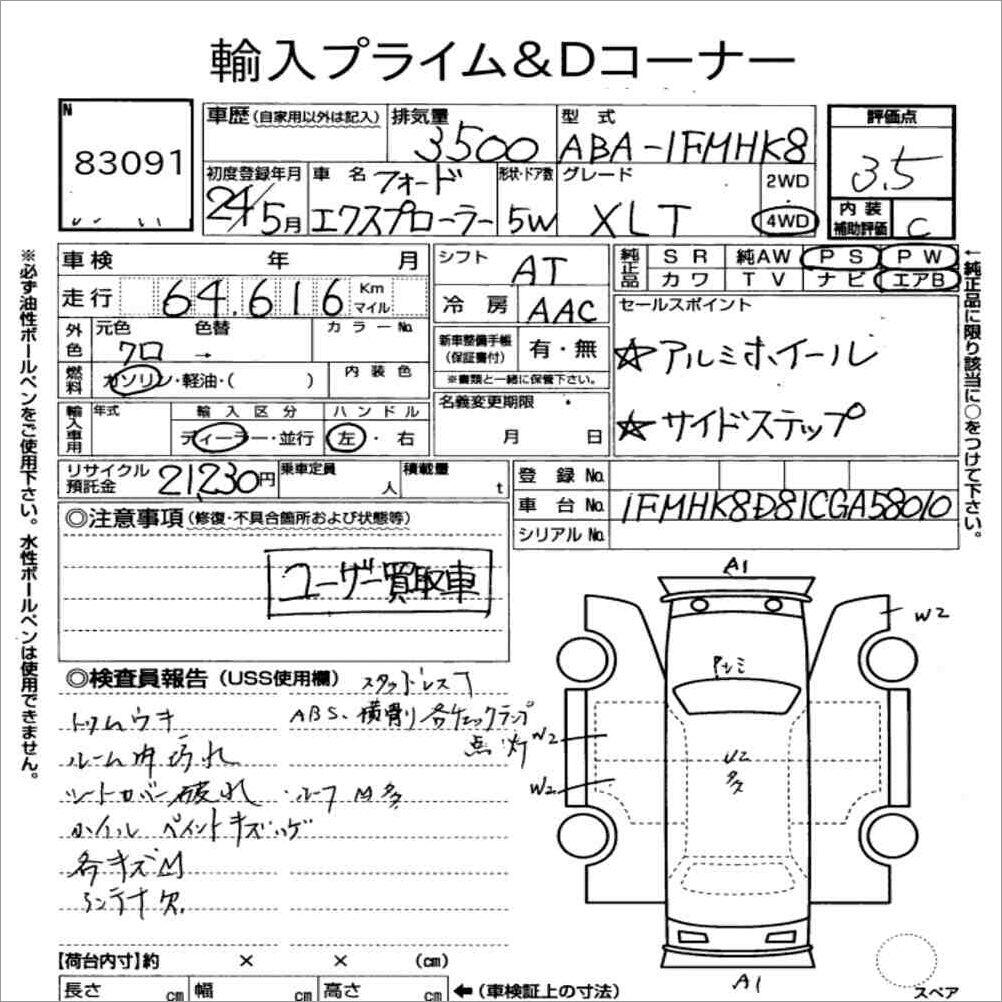 輸入プライム&Dコーナー
N
83091
車歴 (自家用以外は記入)
排気量
3500
型 式
ABA-1FMHK8
評価点
3.5
初度登録年月
24/5月
車 名 フォード
エクスプローラー
形状・ドア数
5W
グレード
XLT
2WD
4WD
内 装
補助評価
C
車 検 年 月
シフト
AT
純正品
S R 純AW P S P W
カ ワ T V ナ ビ エアB
走行 64,616 Km
マイル
冷 房 AAC
セールスポイント
外色
元色
クロ
色替
→
カ ラ ー No.
新車整備手帳
(保証書付)
有・無
※書類と一緒に保管下さい。
☆アルミホイール
燃料
ガソリン・軽油・( )
内 装 色
名義変更期限
月 日
☆サイドステップ
輸入車用
年式
輸 入 区 分
ディーラー・並行
ハ ン ド ル
左・右
リサイクル
預託金
21,230円
乗車定員
人
積載量
t
登 録 No.
車 台 No. 1FMHK8D81CGA58010
シリアル No.
◎注意事項 (修復・不具合箇所および状態等)
ユーザー買取車
◎検査員報告 (USS使用欄)
スタッドレス
ABS、横滑り各チェックランプ
点灯
トリムウキ
ルーム内汚れ
シートカバー破れ
ルーフ
ホイル ペイントキズハゲ
各キズ
アンテナ欠
A1
W2
アルミ
W2
W2
U2
多
A1
スペア
【荷台内寸】約 × × (cm)
長さ cm 幅 cm 高さ cm ←(車検証上の寸法)
※必ず油性ボールペンをご使用下さい。水性ボールペンは使用できません。
←純正品に限り該当に○をつけて下さい。